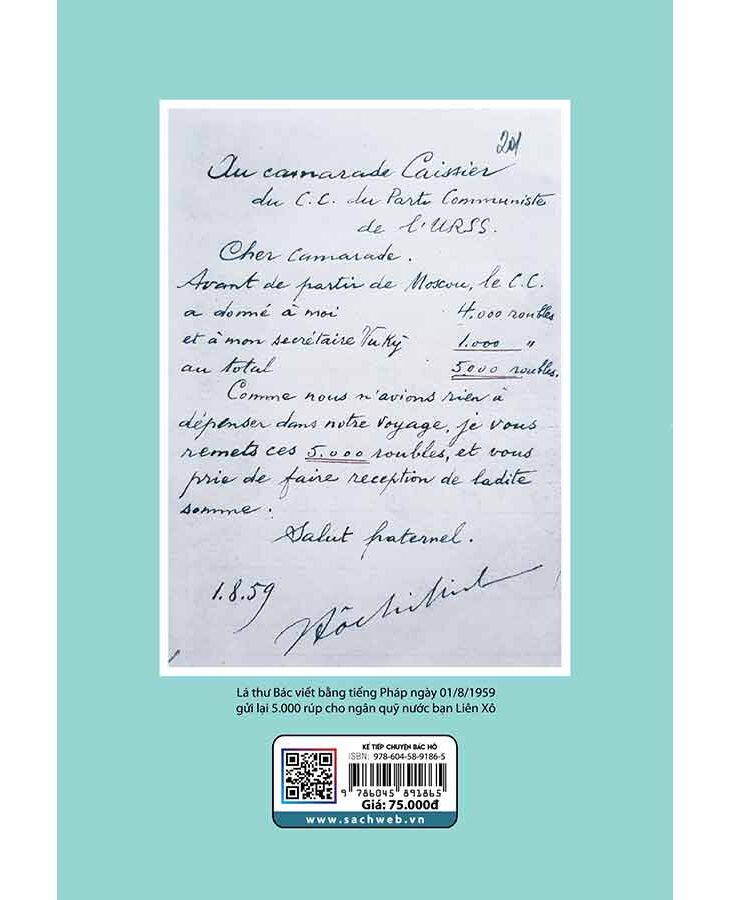 201
Au camarade Caissier
du C.C. du Parti Communiste
de l'URSS.
Cher Camarade.
Avant de partir de Moscou, le C.C.
a donné à moi 4.000 roubles
et à mon secrétaire Vu Kỳ 1.000 "
au total 5.000 roubles.
Comme nous n'avions rien à
dépenser dans notre voyage, je vous
remets ces 5.000 roubles, et vous
prie de faire reception de ladite
somme.
Salut fraternel.
1.8.59
Hồ Chí Minh
Lá thư Bác viết bằng tiếng Pháp ngày 01/8/1959
gửi lại 5.000 rúp cho ngân quỹ nước bạn Liên Xô
KỂ TIẾP CHUYỆN BÁC HỒ
ISBN: 978-604-58-9186-5
9 786045 891865
Giá: 75.000đ
www.sachweb.vn